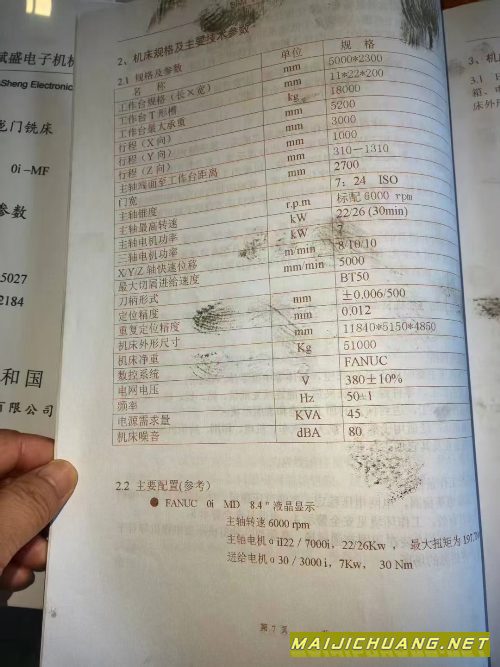 斌盛电子机械
Sheng Electronic
龙门铣床
0i-MF
参数
5027
2184
和国
有限公司
2、机床规格及主要技术参数
2.1 规格及参数
名 称 单位 规 格
工作台规格(长×宽) mm 5000*2300
工作台T形槽 mm 11*22*200
工作台最大承重 kg 18000
行程(X向) mm 5200
行程(Y向) mm 3000
行程(Z向) mm 1000
主轴端面至工作台距离 mm 310-1310
门宽 mm 2700
主轴锥度 7:24 ISO
主轴最高转速 r.p.m 标配6000 rpm
主轴电机功率 kW 22/26 (30min)
三轴电机功率 kW 7
X/Y/Z轴快速位移 m/min 8/10/10
最大切屑进给速度 mm/min 5000
刀柄形式 BT50
定位精度 mm ±0.006/500
重复定位精度 mm 0.012
机床外形尺寸 mm 11840*5150*4850
机床净重 Kg 51000
数控系统 FANUC
电网电压 V 380±10%
频率 Hz 50±1
电源需求量 KVA 45
机床噪音 dBA 80
2.2 主要配置(参考)
● FANUC 0i MD 8.4"液晶显示
主轴转速6000 rpm
主轴电机αiI22/7000i,22/26Kw , 最大扭矩为197.7
送给电机α30/3000i,7Kw, 30 Nm
第 7 页
3、机
3.1
箱、电
床外
MAIJICHUANG.NET